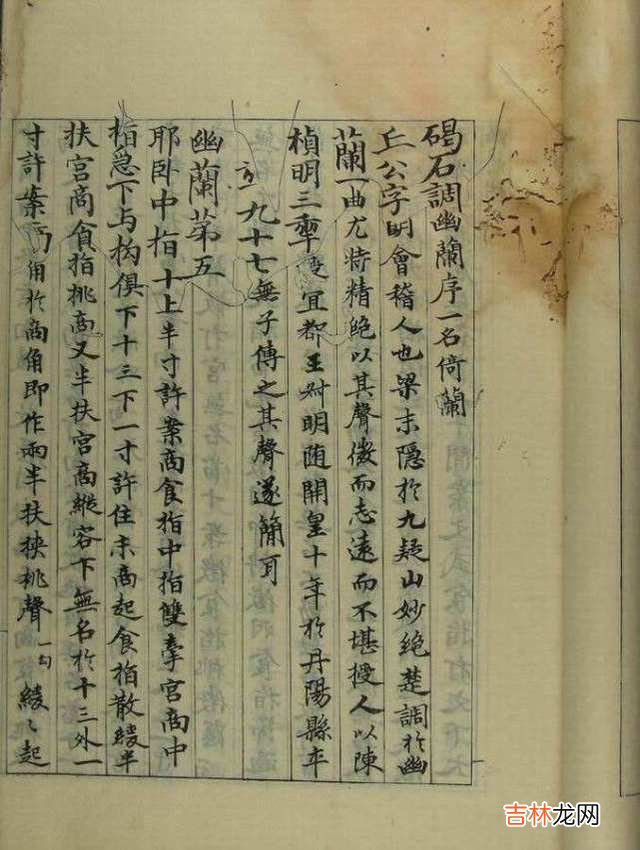 碣石調幽蘭序一名倚蘭
丘公字明會稽人也梁末隱於九疑山妙絶楚調於幽
蘭一曲尤特精絶以其聲微而志遠而不堪授人以陳
禎明三年授宜都王叔明随開皇十年於丹陽縣卒
九十七無子傳之其聲遂簡耳
幽蘭第五
耶卧中指十上半寸許案商食指中指雙牽宮商中
指急下与拘俱下十三下一寸許住末商起食指散緩半
扶宮商食指挑商又半扶宮商縱容下無名於十三外一
寸許案商角於商角即作兩半扶挾挑聲一句緩緩起
吉林龙网